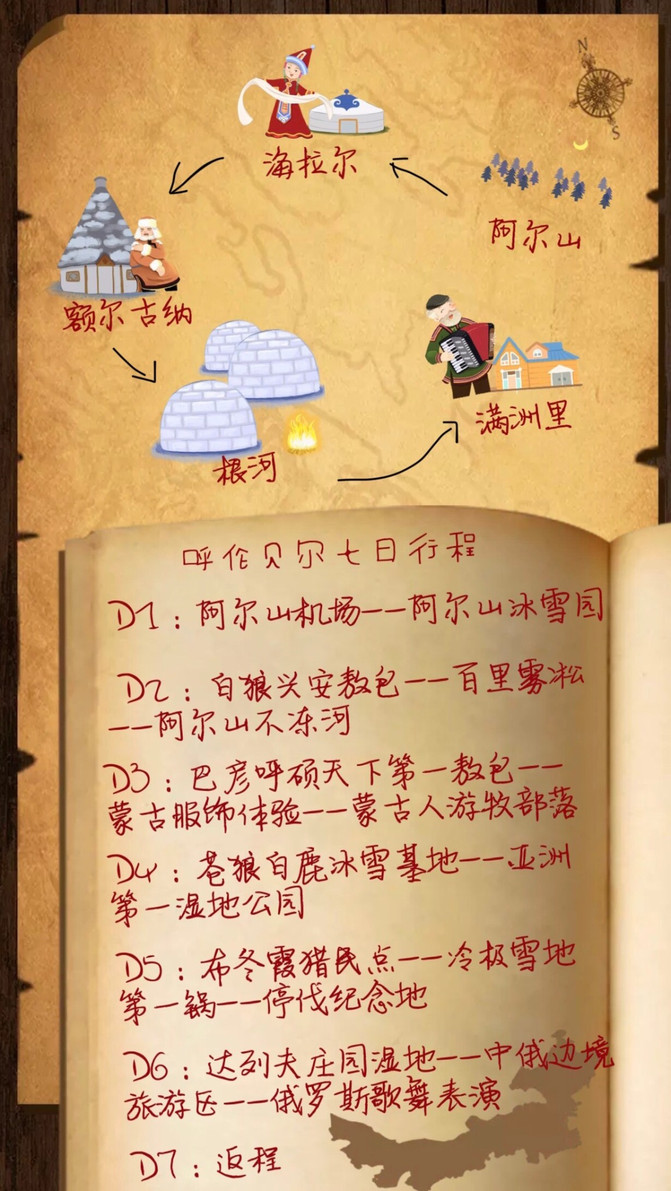 N
S
海拉尔
阿尔山
额尔古纳
满洲里
根河
呼伦贝尔七日行程
D1：阿尔山机场——阿尔山冰雪园
D2：白狼兴安敖包——百里雾凇
——阿尔山不冻河
D3：巴彦呼硕天下第一敖包——
蒙古服饰体验——蒙古人游牧部落
D4：苍狼白鹿冰雪基地——亚洲
第一湿地公园
D5：布冬霞猎民点——冷极雪地
第一锅——停伐纪念地
D6：达列夫庄园湿地——中俄边境
旅游区——俄罗斯歌舞表演
D7：返程